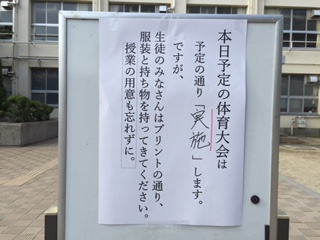 本日予定の体育大会は
予定の通り「実施」します。
ですが、
生徒のみなさんはプリントの通り、
服装と持ち物を持ってきてください。
授業の用意も忘れずに。